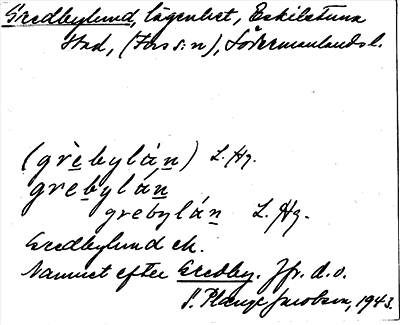 Gredbylund, lägenhet, Eskilstuna
stad, (Fors s:n), Södermanlands l.
(grèbylán) L. Hg.
grebylán
grebylán L. Hg.
Gredbylund ek.
Namnet efter Gredby. Jfr. d.o.
Jacobson, 1943.